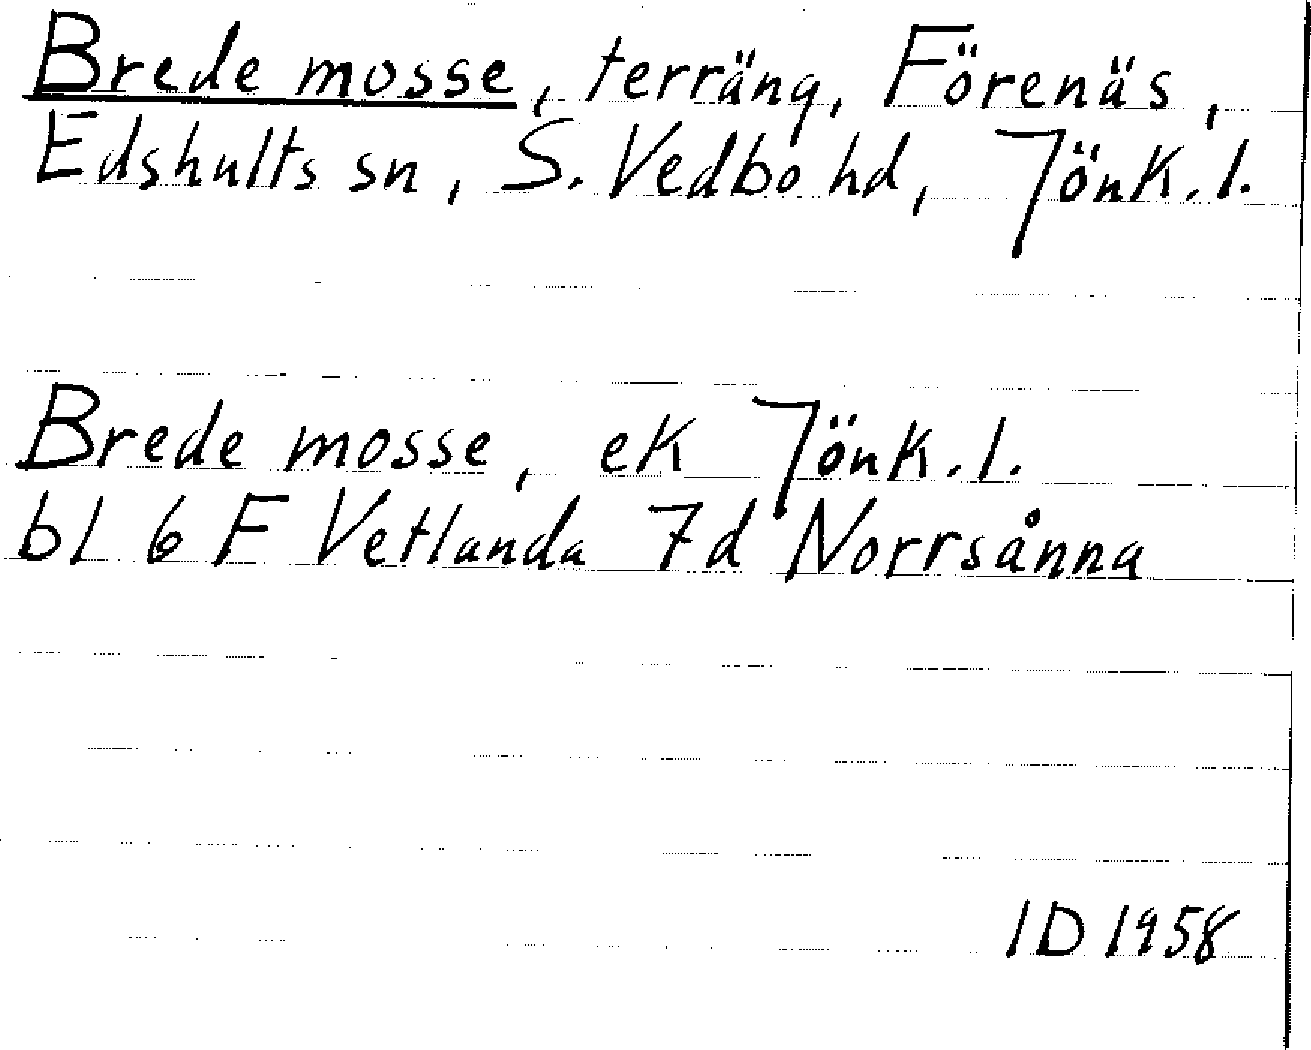 Brede mosse, terräng, Förenäs,
Edshults sn, S. Vedbo hd, Jönk.l.
Brede mosse, ek Jönk.l.
bl 6 F Vetlanda 7d Norrsånna
ID 1958